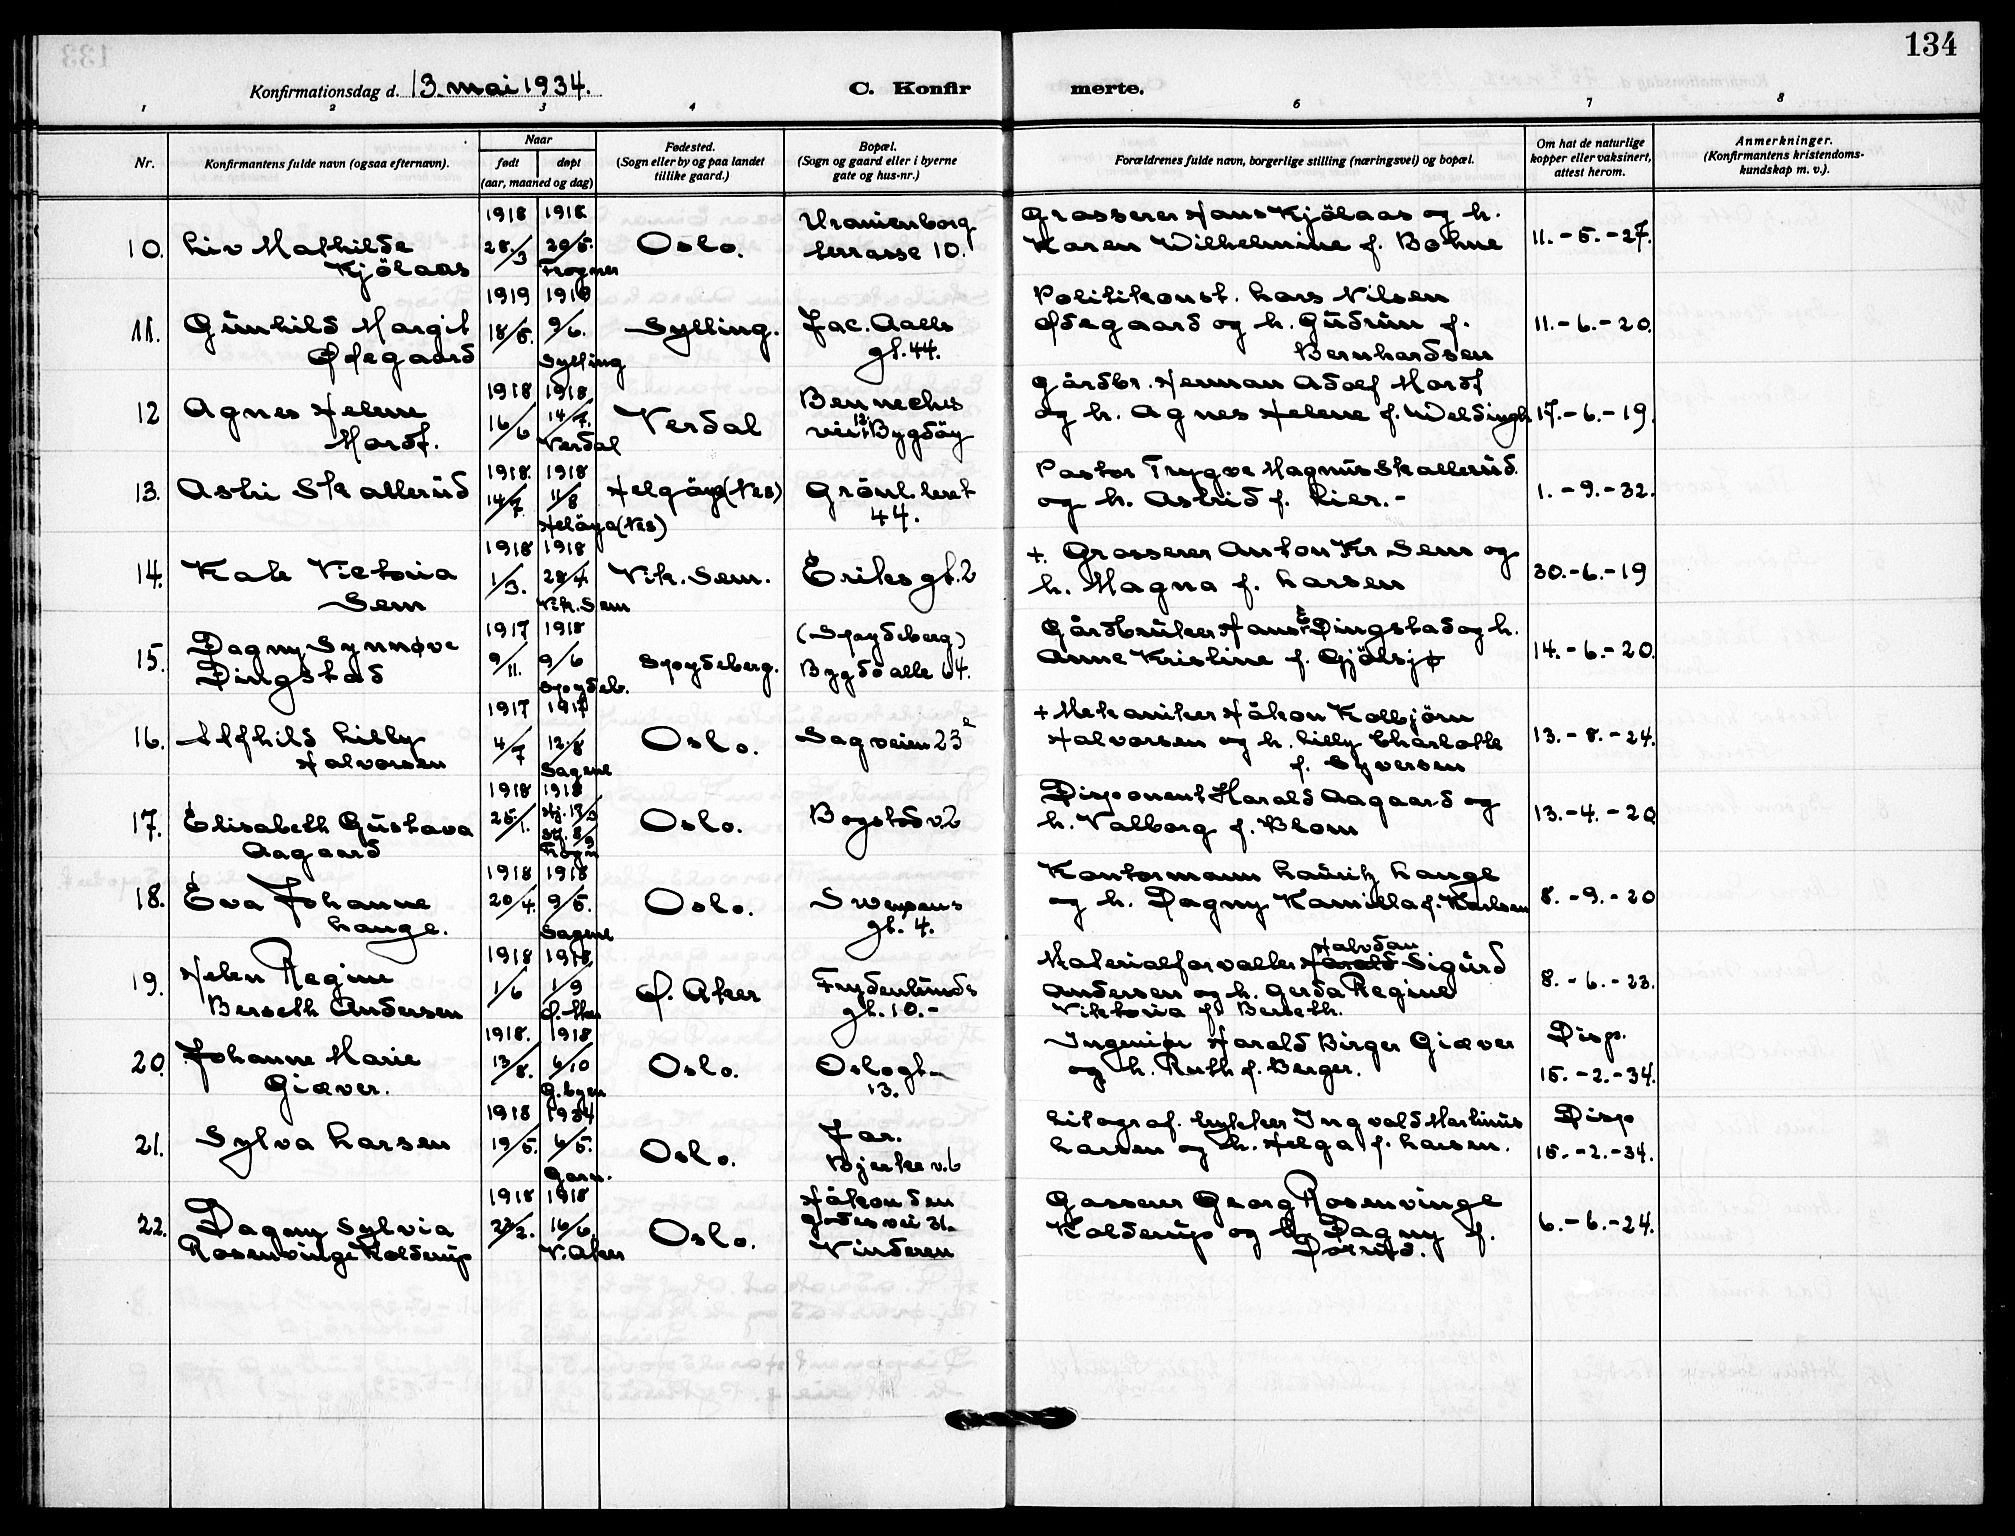 134
Konfirmationsdag d. 13. mai 1934.
C. Konfirmerte.
1 2 3 4 5 6 7 8
Nr.
Konfirmantens fulde navn (ogsaa efternavn).
Naar
født døpt
(aar, maaned og dag)
Fødested.
(Sogn eller by og paa landet
tillike gaard.)
Bopæl.
(Sogn og gaard eller i byerne
gate og hus-nr.)
Forældrenes fulde navn, borgerlige stilling (næringsvei) og bopæl.
Om hat de naturlige
kopper eller vaksinert,
attest herom.
Anmerkninger.
(Konfirmantens kristendoms-
kundskap m. v.).
10. Liv Mathilde
Kjölaas
1918 28/3
1918 29/5. Frogner
Oslo.
Uranienborg
terrasse 10.
Grosserer Hans Kjölaas og h.
Karen Wilhelmine f. Bohne
11. - 5. - 27.
11. Gunhild Margit
Ødegaard
1919 18/5.
1919 9/6. Sylling
Sylling.
Jac. Aalls
gt. 44.
Politikonst. Lars Nilsen
Ødegaard og h. Gudrun f.
Bernhardsen
11. - 6. - 20.
12 Agnes Helene
Mordt.
1918 16/6
1918 14/7. Verdal
Verdal
Bennechs
vei 12 Bygdöy
Gårdbr. Herman Adolf Mordt
og h. Agnes Helene f. Weldingh
17. - 6. - 19.
13. Astri Skallerud
1918. 14/7.
1918 11/8 Helöya (Nes)
Helgöya (Nes)
Grönl. leret
44.
Pastor Trygve Magnus Skallerud
og h. Astrid f. Lier. -
1. - 9. - 32.
14. Kate Victoria
Sem
1918 1/3.
1918 28/4. Vik. Sem
Vik. Sem.
Eriks gt. 2
+. Grosserer Anton Kr Sem og
h. Magna f. Larsen
30. - 6. - 19
15. Dagny Synnøve
Dingstad
1917 9/11.
1918 9/6 Spydeb.
Spydeberg.
(Spydeberg)
Bygdö alle 64.
Gårdbruker Hans E. Dingstad og h.
Anne Kristine f. Gjölsjø
14. - 6. - 20.
16. Alfhild Lilly
Halvorsen
1917 4/7
1917 12/8 Sagene
Oslo.
Sagveien 23 e
+ Mekaniker Håkon Kolbjörn
Halvorsen og h. Lilly Charlotte
f. Syversen
13. - 8. - 24.
17. Elisabeth Gustava
Aagaard
1918 25/1.
1918 Hj. 17/3 Stf. 8/9 Frogn
Oslo.
Bogstad v. 2
Disponent Harald Aagaard og
h. Valborg f. Blom
13. - 4. - 20
18. Eva Johanne
Lange.
1918 20/4.
1918 9/5. Sagene
Oslo.
Swensens
gt. 4.
Kontormann Lauritz Lange
og h. Dagny Kamilla f. Karlsen
8. - 9. - 20
19. Helen Regine
Berseth Andersen
1918 1/6
1918 1/9 Ø. Aker
Ø. Aker
Frydenlunds
gt. 10. -
Materialforvalter Harald Halvdan Sigurd
Andersen og h. Gerda Regine
Viktoria f. Berseth.
8. - 6. - 23.
20. Johanne Marie
Giæver.
1918. 13/8.
1918 6/10 G. byen
Oslo.
Oslogt.
13.
Ingeniør Harald Birger Giæver
og h. Ruth f. Berger.
Disp.
15. - 2. - 34.
21. Sylva Larsen
1918 19/5.
1934 6/5. Garn.
Oslo.
Jar.
Bjerke v. 6
Litograf. trykker Ingvald Martinus
Larsen og h. Helga f. Larsen.
Disp
15. - 2. - 34.
22. Dagny Sylvia
Rosenvinge Kolderup
1918 23/2.
1918 16/6. V. Aker
Oslo.
Håkon den
godes vei 31.
Vinderen
Gosserer Georg Rosenvinge
Kolderup og h. Dagny f.
Dörrud.
6. - 6. - 24.